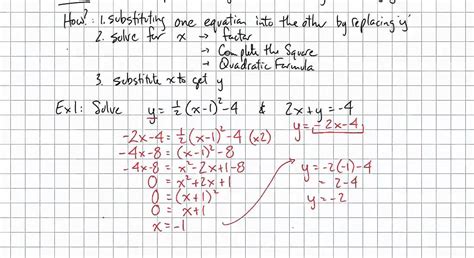 How?: 1. substituting one equation into the other by replacing 'y'
2. solve for x → factor
→ Complete the Square
→ Quadratic Formula
3. substitute x to get y
Ex1: Solve y = ½(x-1)² - 4 & 2x + y = -4
y = -2x - 4
-2x-4 = ½(x-1)² - 4 (x2)
-4x-8 = (x-1)² - 8
-4x-8 = x² - 2x + 1 - 8
0 = x² + 2x + 1
0 = (x+1)²
0 = x+1
x = -1
y = -2(-1) - 4
= 2 - 4
y = -2